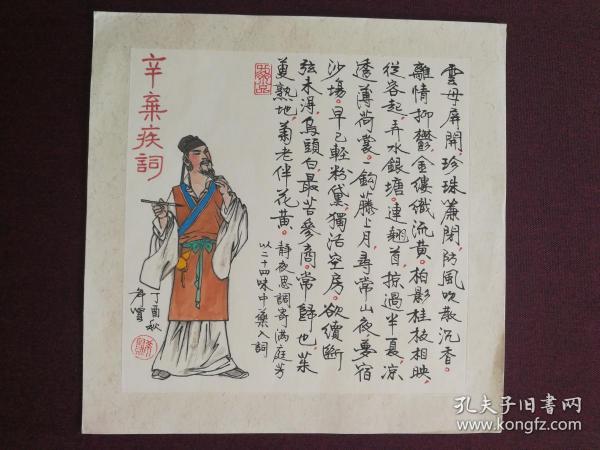 雲母屏開,珍珠簾閉,防風吹散沉香。
離情抑鬱,金縷織流黃。柏影桂枝相映,
從容起,弄水銀塘。連翹首,掠過半夏,涼
透薄荷裳。一鈎藤上月,尋常山夜,夢宿
沙塲。早已輕粉黛,獨活空房。欲續斷
弦未得,烏頭白,最苦參商。常歸也,茱
萸熟地,菊老伴花黃。靜夜思調寄滿庭芳
以二十四味中藥入詞
辛棄疾詞
丁酉秋
孔夫子旧书网
www.kongfz.com